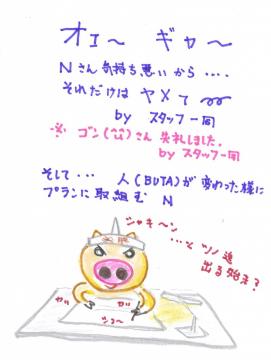 オエ〜 ギャー
Nさん気持ち悪いから‥‥
それだけは ヤメて
by スタッフ一同
※ ゴン(^^)さん 失礼しました。
by スタッフ一同
そして‥‥ 人(BUTA)が変わった様に
プランに取組む N
シャキーン
‥‥とツノ迄
出る始末?
必勝
ガ
ガ